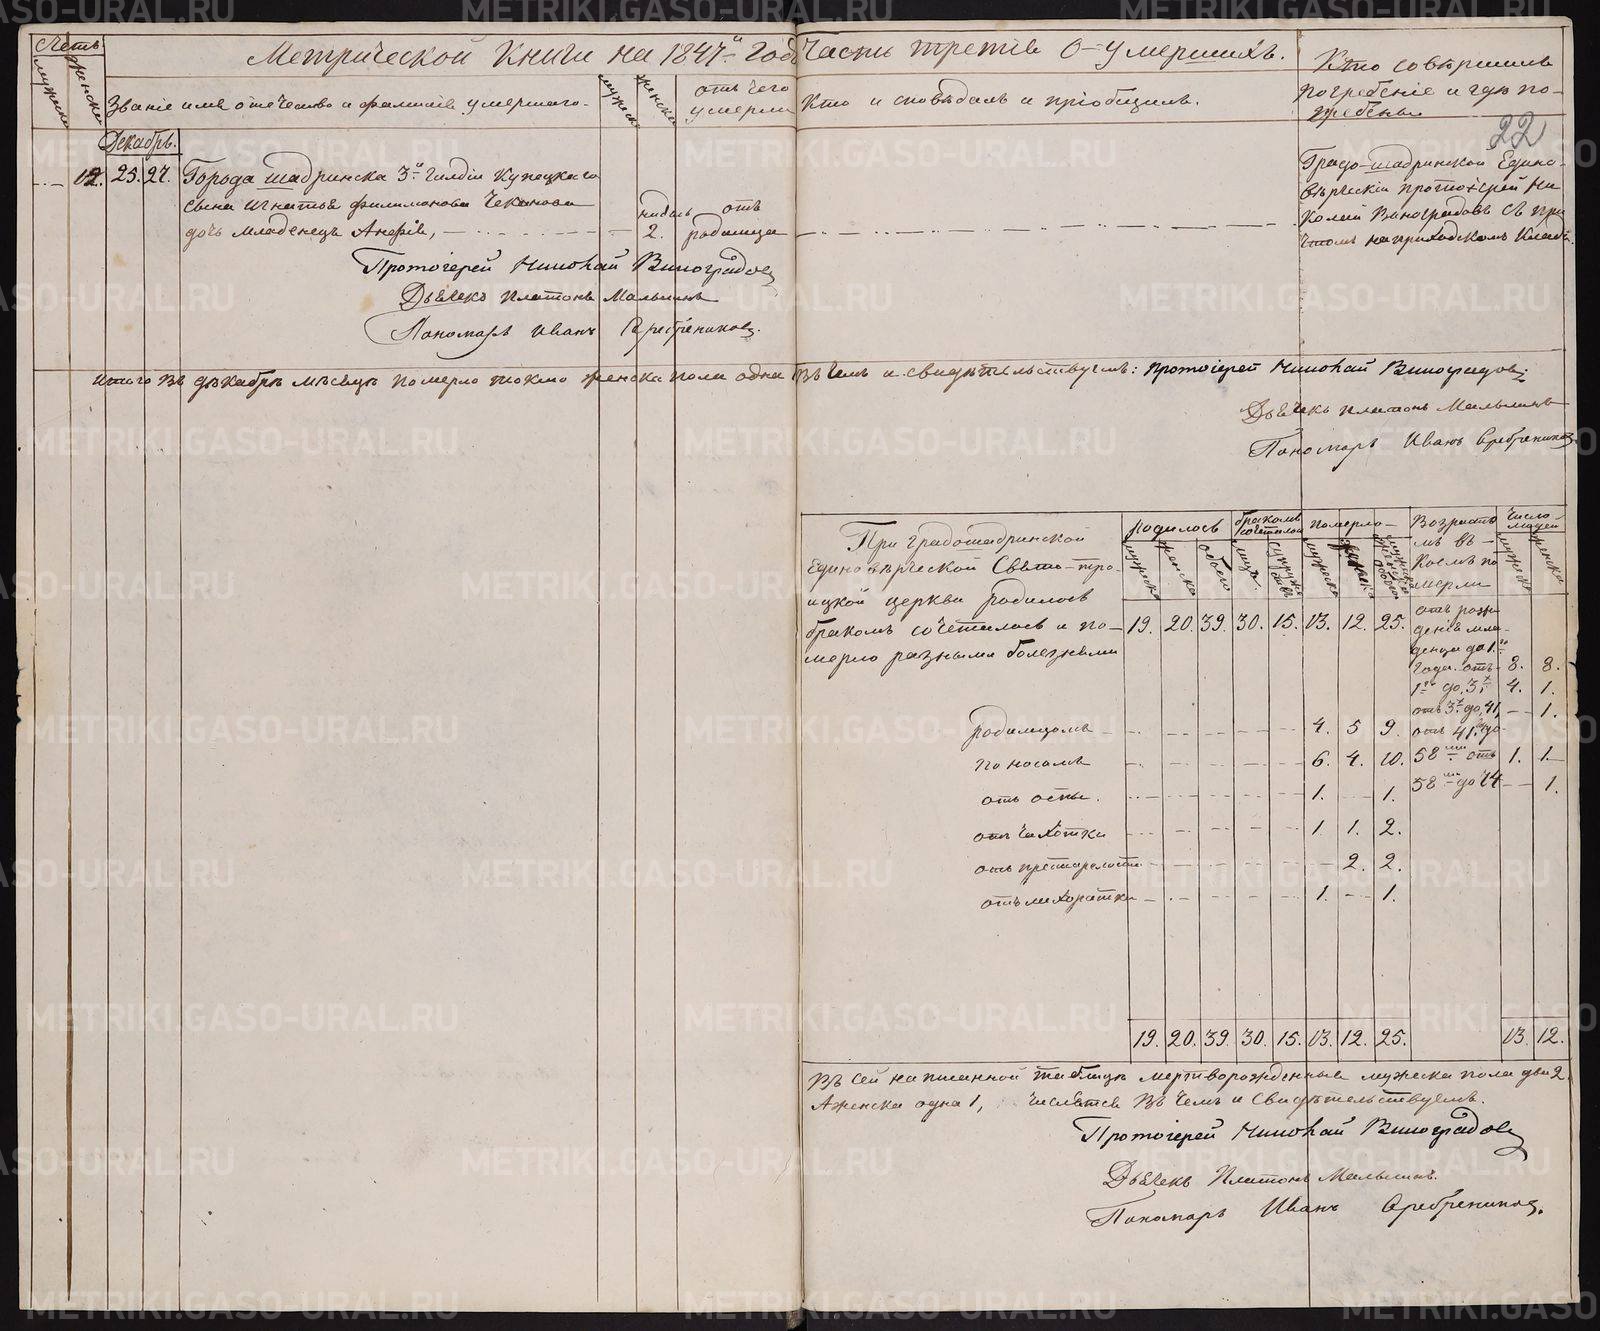 Счетъ
мужеска
женска
Метрической Книги на 1847й годъ
Часть третія О умершихъ.
Званіе имя отечество и фамилія умершаго.
мужеска
женска
отъ чего
умерли
Кто исповѣдалъ и пріобщилъ.
Кто совершилъ
погребеніе и гдѣ по-
гребены
22
Декабрь.
12. 25. 27. Города Шадринска 3й Гилдіи Купецкаго
сына Игнатья Филимонова Чеканова
дочь младенецъ Анфія,
недѣль
2.
отъ
родимца
Градо-шадринской Едино-
вѣрческій протоіерей Ни
колай Виноградовъ съ при
чтомъ на приходскомъ Кладб.
Протоіерей Николай Виноградовъ
Дьячекъ Платонъ Мальшинъ
Пономарь Иванъ Серебрениковъ.
Итого въ декабрѣ мѣсяцѣ померло токмо женска пола одна въ чемъ и свидѣтельствуемъ: Протоіерей Николай Виноградовъ:
Дьячекъ Платонъ Мальшинъ
Пономарь Иванъ Серебрениковъ
При градошадринской
Единовѣрческой Свято-тро-
ицкой церкви родилось
бракомъ сочеталось и по-
мерло разными болезньми
родилось
бракомъ сочеталось
померло
Возрасто
мъ въ
коемъ по
мерли
Число
людей
мужеска
женска
обоего
лицъ
супружествъ
мужеска
женска
мужеска
женска
19. 20. 39. 30. 15. 13. 12. 25.
отъ рож
денія мла-
денца до 1го
года 8. 8.
отъ 1го до 3х 4. 1.
отъ 3х до 41, 1.
отъ 41 до
58ми 1. 1.
отъ 58ми до 74 1.
родимцомъ 4. 5 9.
поносомъ 6. 4. 10.
отъ оспы. 1. 1.
отъ чахотки 1. 1. 2.
отъ престарелости 2. 2.
отъ лихоратки 1. 1.
19. 20. 39. 30. 15. 13. 12. 25. 13. 12.
Въ сей написанной таблицѣ мертворожденные мужеска пола два 2
А женска одна 1, числятся въ чемъ и Свидѣтельствуемъ.
Протоіерей Николай Виноградовъ
Дьячекъ Платонъ Мальшинъ.
Пономарь Иванъ Серебрениковъ.
METRIKI.GASO-URAL.RU